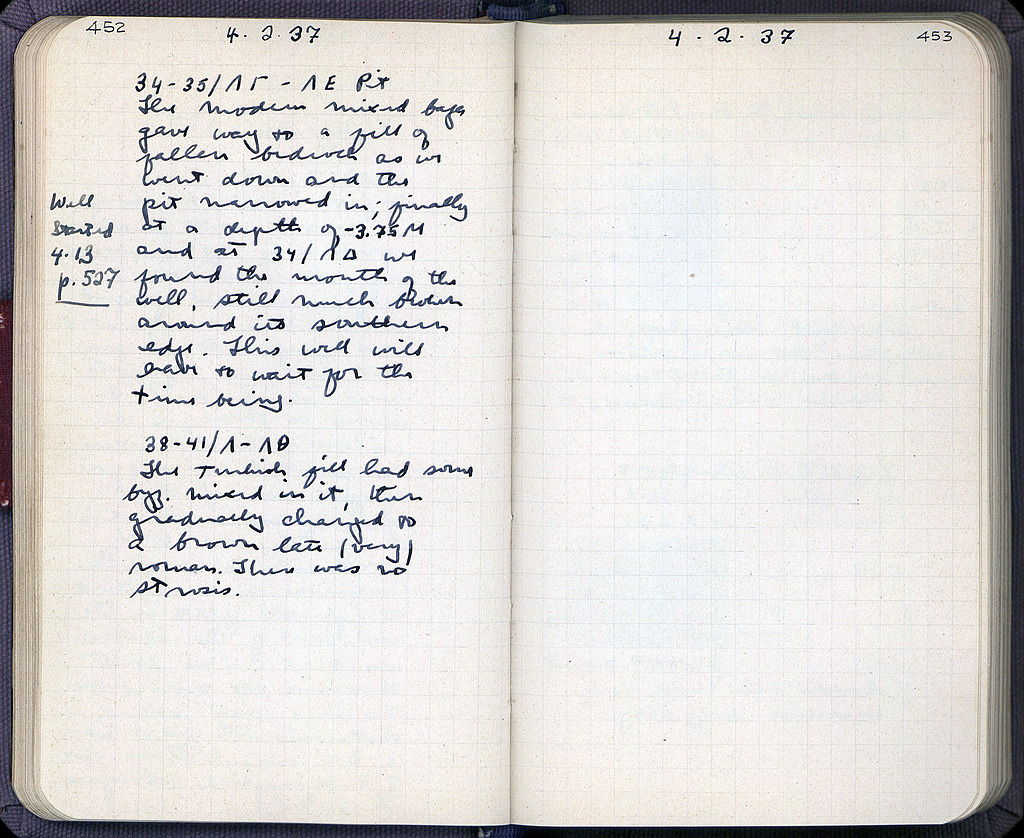 452
4. 2. 37
34-35/ΛΓ - ΛΕ Pit
The modern mixed
gave way to a fill of
fallen bedrock as we
went down and the
pit narrowed in; finally
at a depth of -3.75 M
and at 34/ΛΔ we
found the mouth of the
well, still much broken
around its southern
edge. This well will
have to wait for the
time being.
Well
Started
4.13
p. 527
38-41/Λ-ΛΘ
The Turkish fill had some
byz. mixed in it, then
gradually changed to
a brown late (very)
roman. There was no
strosis.
4 - 2 - 37
453